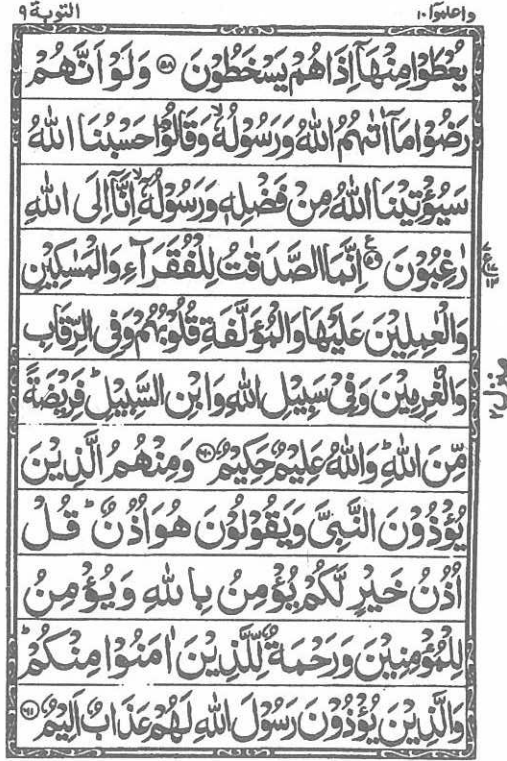 واعلموا ١٠
التوبة ٩
يُعْطَوْا مِنْهَاۤ اِذَا هُمْ يَسْخَطُوْنَ ﴿٥٨﴾ وَلَوْ اَنَّهُمْ
رَضُوْا مَاۤ اٰتٰىهُمُ اللّٰهُ وَرَسُوْلُهٗ ۙ وَقَالُوْا حَسْبُنَا اللّٰهُ
سَيُؤْتِيْنَا اللّٰهُ مِنْ فَضْلِهٖ وَرَسُوْلُهٗۤ ۙ اِنَّاۤ اِلَى اللّٰهِ
رٰغِبُوْنَ ﴿٥٩﴾ اِنَّمَا الصَّدَقٰتُ لِلْفُقَرَآءِ وَالْمَسٰكِيْنِ
وَالْعٰمِلِيْنَ عَلَيْهَا وَالْمُؤَلَّفَةِ قُلُوْبُهُمْ وَفِى الرِّقَابِ
وَالْغٰرِمِيْنَ وَفِيْ سَبِيْلِ اللّٰهِ وَابْنِ السَّبِيْلِ ؕ فَرِيْضَةً
مِّنَ اللّٰهِ ؕ وَاللّٰهُ عَلِيْمٌ حَكِيْمٌ ﴿٦٠﴾ وَمِنْهُمُ الَّذِيْنَ
يُؤْذُوْنَ النَّبِىَّ وَيَقُوْلُوْنَ هُوَ اُذُنٌ ؕ قُلْ
اُذُنُ خَيْرٍ لَّكُمْ يُؤْمِنُ بِاللّٰهِ وَيُؤْمِنُ
لِلْمُؤْمِنِيْنَ وَرَحْمَةٌ لِّلَّذِيْنَ اٰمَنُوْا مِنْكُمْ ؕ
وَالَّذِيْنَ يُؤْذُوْنَ رَسُوْلَ اللّٰهِ لَهُمْ عَذَابٌ اَلِيْمٌ ﴿٦١﴾
منزل ٢